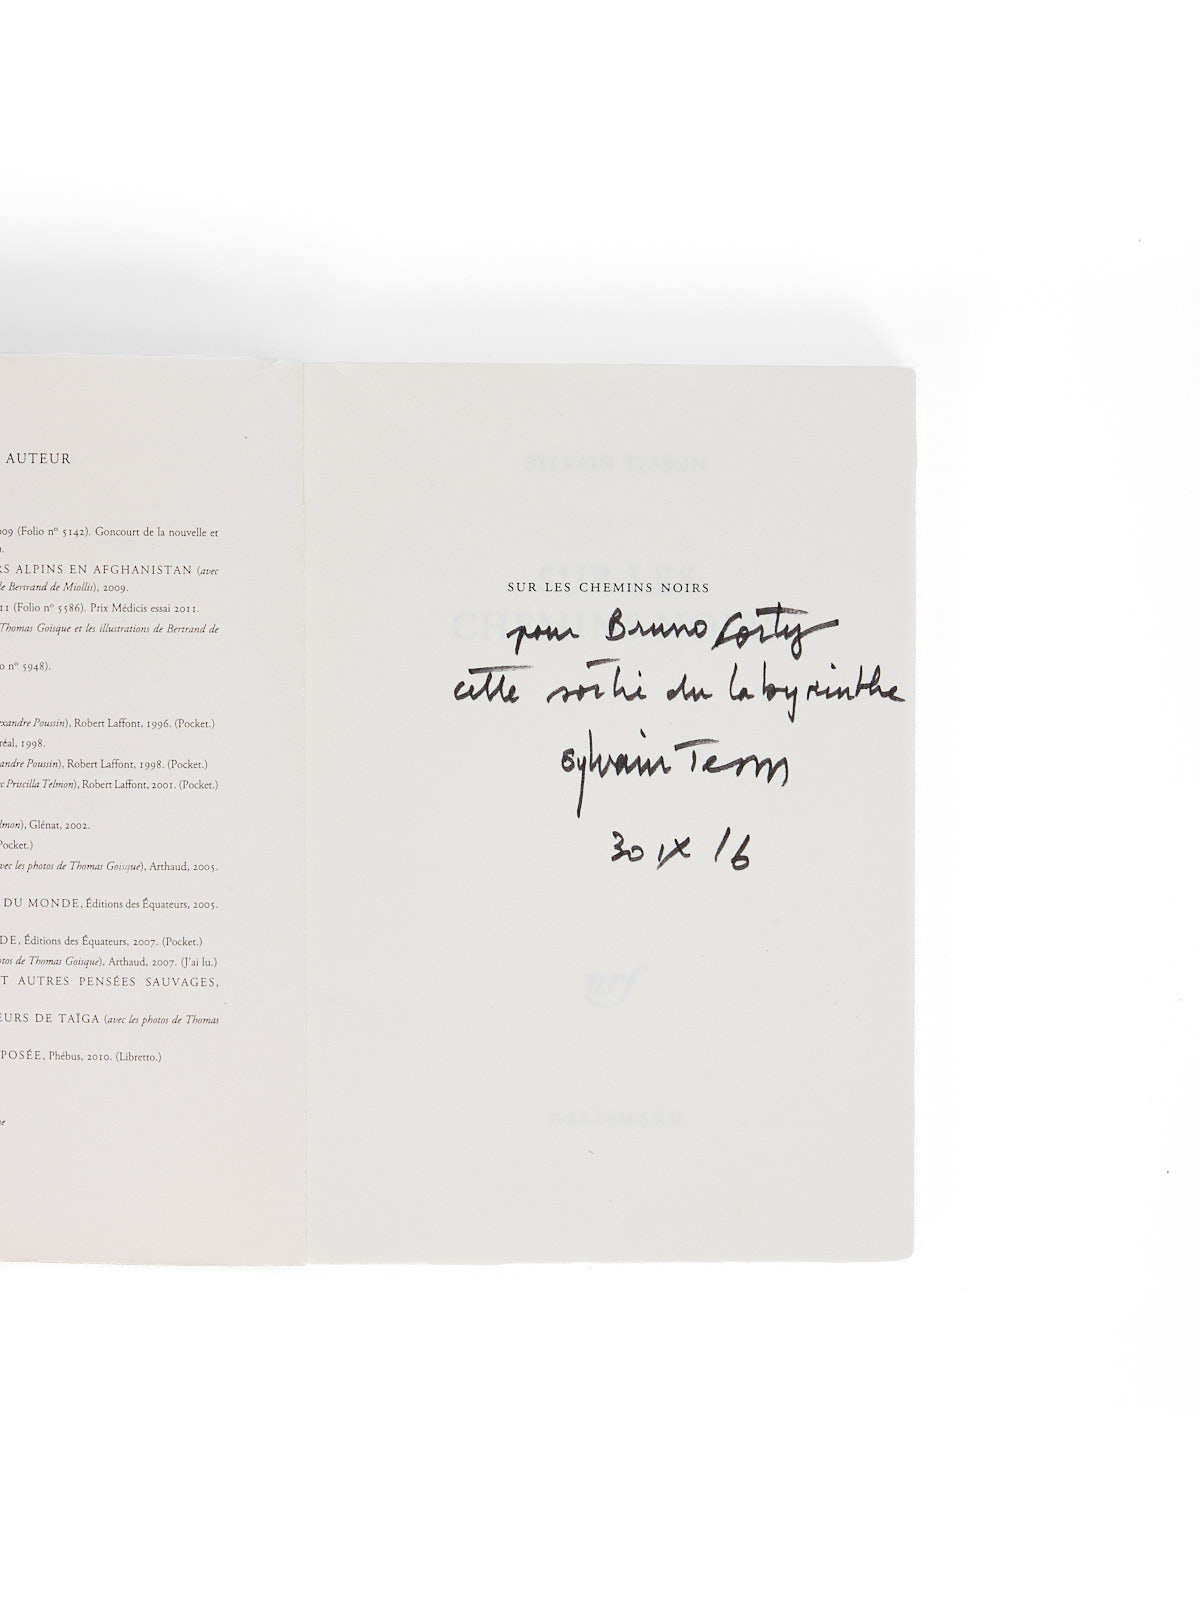 AUTEUR
009 (Folio nº 5142). Goncourt de la nouvelle et
RS ALPINS EN AFGHANISTAN (avec
de Bertrand de Miollis), 2009.
11 (Folio nº 5586). Prix Médicis essai 2011.
Thomas Goisque et les illustrations de Bertrand de
o nº 5948).
exandre Poussin), Robert Laffont, 1996. (Pocket.)
réal, 1998.
andre Poussin), Robert Laffont, 1998. (Pocket.)
c Priscilla Telmon), Robert Laffont, 2001. (Pocket.)
lmon), Glénat, 2002.
Pocket.)
vec les photos de Thomas Goisque), Arthaud, 2005.
DU MONDE, Éditions des Équateurs, 2005.
DE, Éditions des Équateurs, 2007. (Pocket.)
otos de Thomas Goisque), Arthaud, 2007. (J'ai lu.)
T AUTRES PENSÉES SAUVAGES,
EURS DE TAÏGA (avec les photos de Thomas
POSÉE, Phébus, 2010. (Libretto.)
SYLVAIN TESSON
SUR LES
SUR LES CHEMINS NOIRS
pour Bruno Corty
cette sortie du labyrinthe
Sylvain Tesson
30 IX 16
nrf
GALLIMARD